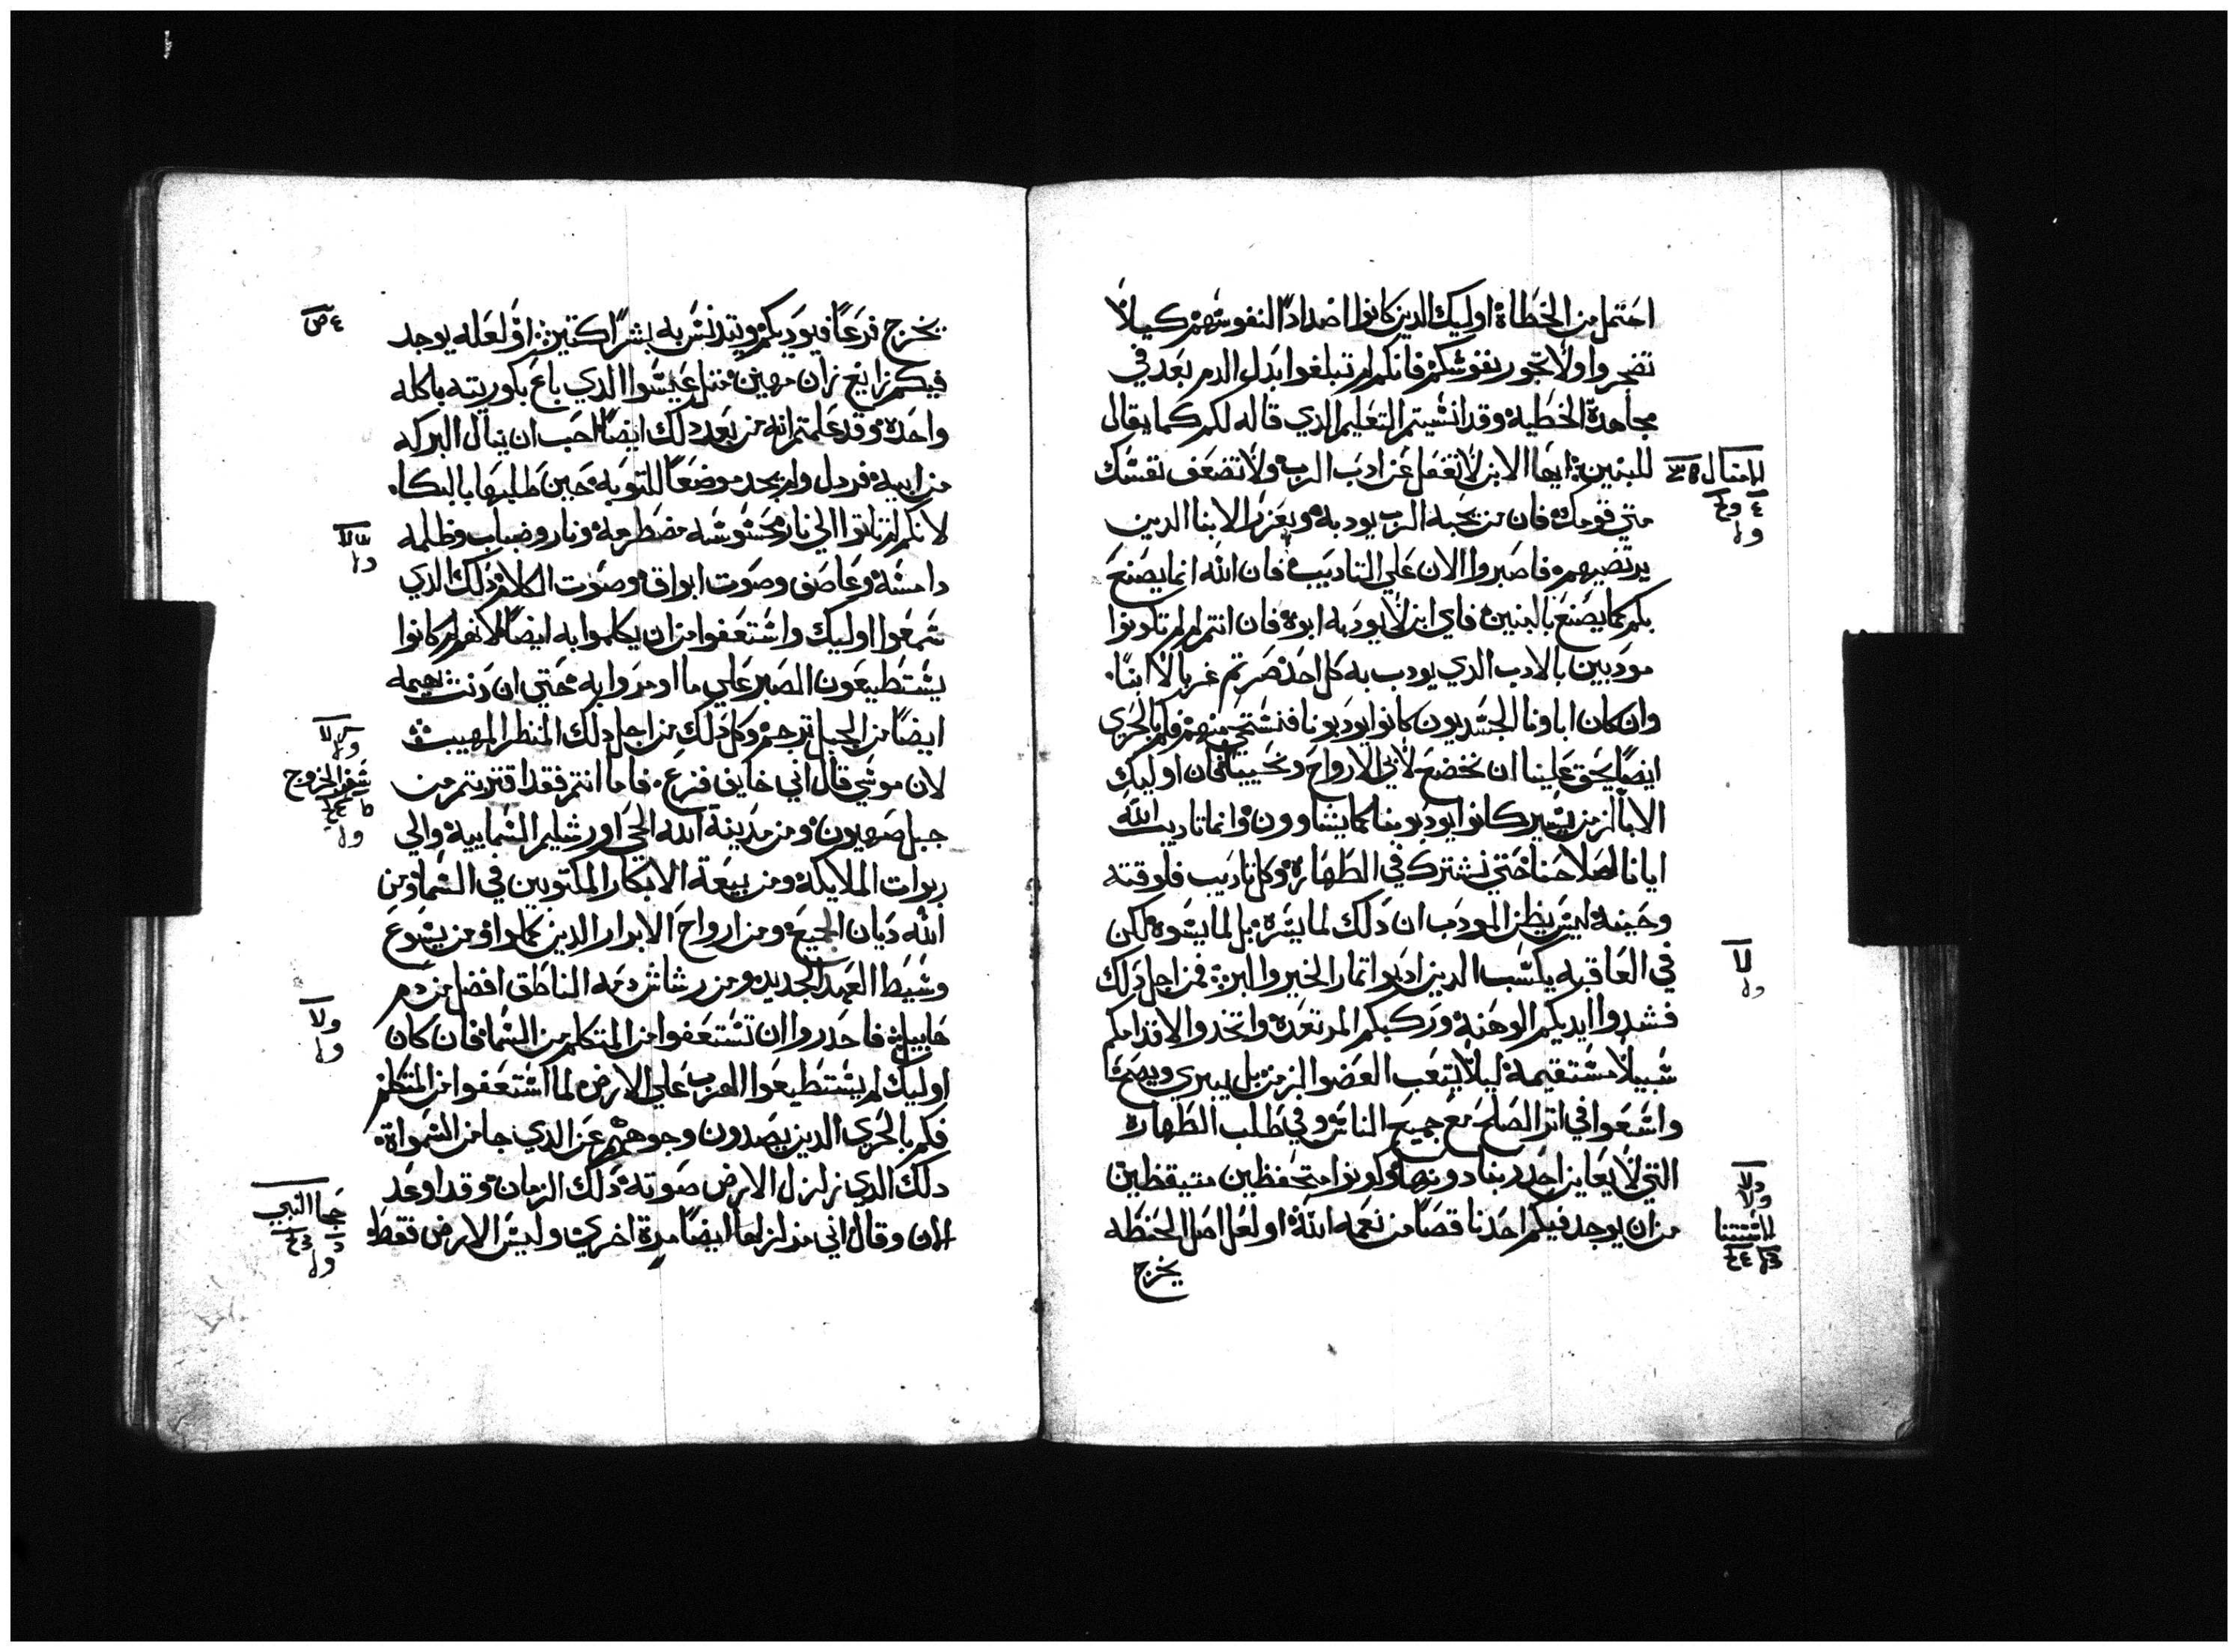 احتمل من الخطاة اوليك الدين كانوا اضدادا لنفوسهم كيلا
تضجروا ولا تخور نفوسكم فانكم لم تبلغوا بدل الدم بعد في
مجاهدة الخطيه وقد انسيتم التعليم الدي قاله لكم كما يقال
للبنين ايها الابن لا تغفل عن ادب الرب ولا تضعف نفسك
متي قومك فان من يحبه الرب يودبه ويعزر الابنا الدين
يرتضيهم فاصبروا الان علي التاديب فان الله انما يصنع
بكم كما يصنع بالبنين فاي ابن لا يودبه ابوه فان انتم لم تكونوا
مودبين بالادب الدي يودب به كل احد صرتم غربا لا ابنا
وان كان اباونا الجسديون كانوا يودبونا فنستحي منهم فكم بالحري
ايضا يحق علينا ان نخضع لابي الارواح ونحييا فان اوليك
الابا لزمن يسير كانوا يودبوننا كما يشاوون وانما تاديب الله
ايانا لصلاحنا حتي نشترك في الطهاره وكل تاديب فلوقته
وحينه ليس يظن المودب ان دلك لما يسره بل لما يسوه لكن
في العاقبه يكسب الدين ادبوا تمار الخير والبر فمن اجل دلك
فشدوا ايديكم الوهنة وركبكم المرتعده واتخدوا لاقدامكم
سبيلا مستقيمة ليلا يتعب العضو الزمن بل يبري ويصح
واسعوا في اتر الصلح مع جميع الناس وفي طلب الطهارة
التي لا يعاين احد ربنا دونها وكونوا متحفظين متيقظين
من ان يوجد فيكم احد ناقصا من نعمه الله او لعل اصل الحنظله
يخرج
يخرج فرعا فيوديكم ويتدنس به بشرا كتير او لعله يوجد
فيكم زايغ زان مهين متل عيسوا الدي باع بكوريته باكله
واحده وقد علمتم انه من بعد دلك ايضا احب ان ينال البركه
من ابيه فردل ولم يجد موضعا للتوبه حين طلبها بالبكا
لانكم لم تاتوا الي نار محسوسه مضطرمه ونار وضباب وظلمه
دامسه وعاصف وصوت ابواق وصوت الكلام دلك الدي
سمعوا اوليك واستعفوا من ان يكلموا به ايضا لانهم لم كانوا
يستطيعون الصبر علي ما اومروا به حتي ان دنت بهيمه
ايضا من الجبل ترجم وكل دلك من اجل دلك المنظر المهيب
لان موسي قال اني خايف فزع فاما انتم فقد اقتربتم من
جبل صهيون ومن مدينة الله الحي اورشليم السماييه والي
ربوات الملايكه ومن بيعة الابكار المكتوبين في السما ومن
الله ديان الجميع ومن ارواح الابرار الدين كملوا ومن يسوع
وسيط العهد الجديد ومن رشاش دمه الناطق افضل من دم
هابيل فاحدروا ان تستعفوا من المتكلم من السما فان كان
اوليك لم يستطيعوا الهرب علي الارض لما استعفوا من المتكلم
فكم بالحري الدين يصدون وجوههم عن الدي جا من السمواة
دلك الدي زلزل الارض صوته دلك الزمان وقد اوعد
الان وقال اني مزلزلها ايضا مرة اخري وليس الارض فقط
سفر الخروج
حجا النبي